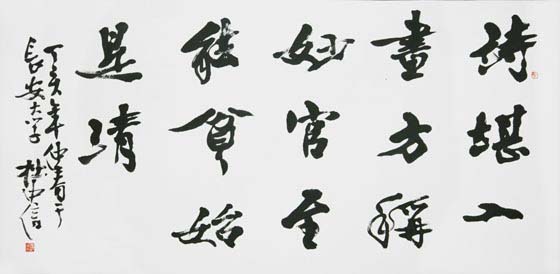 詩堪入
畫方稱
妙官至
能貧始
是清
丁亥年仲春于
長安大学 杜中信